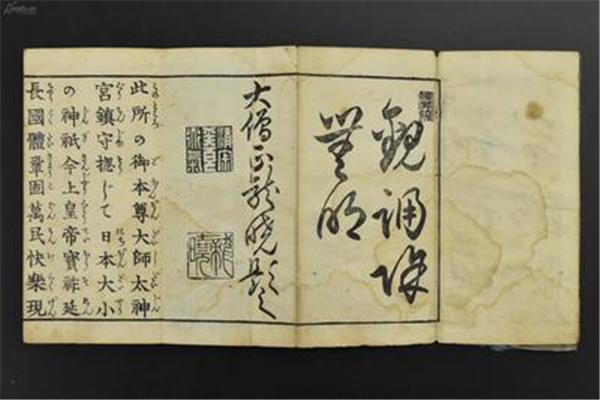 觀誦除
無明
大僧正龍曉題
龍曉
此所の御本尊大師太神
宮鎮守揔じて日本大小
の神祇今上皇帝寳祚延
長國體鞏固萬民快樂現